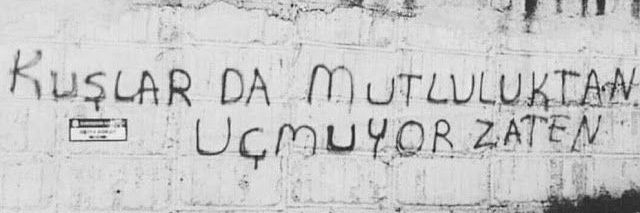 KUŞLAR DA MUTLULUKTAN
UÇMUYOR ZATEN